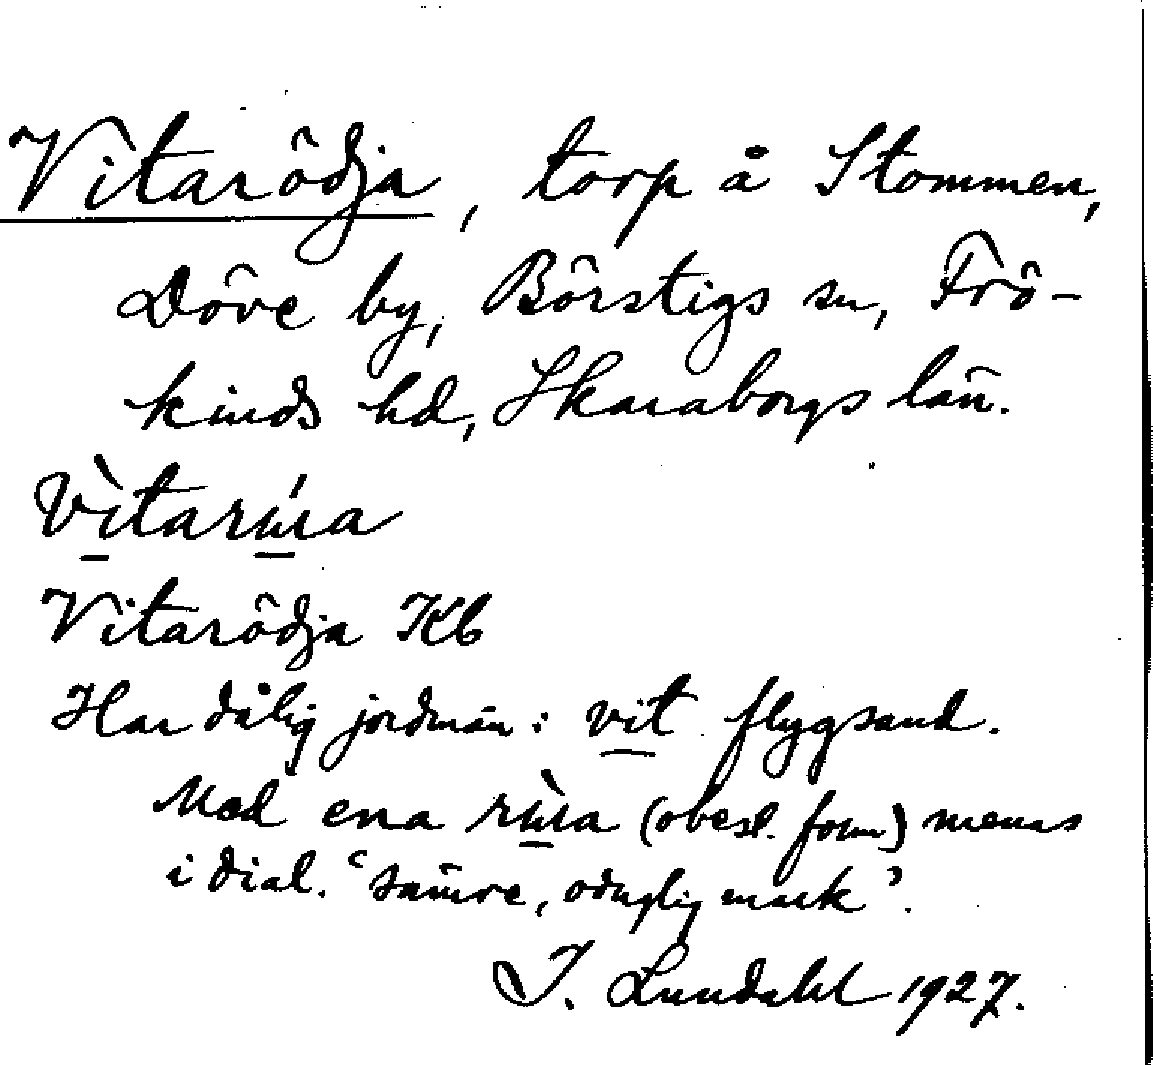 Vitarödja, torp å Stommen,
Döve by, Börstigs sn, Frö-
kinds hd, Skaraborgs län.
Vitarödja Kb
Har dålig jordmån: vit flygsand.
Med ena (obest. form) menas
i dial. 'sämre, oduglig mark'.
I. Lundahl 1927.